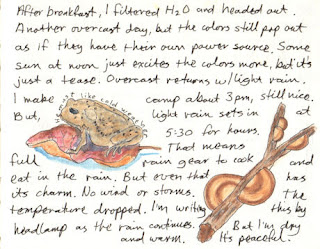 After breakfast, I filtered H2O and headed out.
Another overcast day, but the colors still pop out
as if they have their own power source. Some
sun at noon just excites the colors more, but it's
just a tease. Overcast returns w/light rain.
I make camp about 3pm, still nice.
But, light rain sets in at
5:30 for hours.
That means
full rain gear to cook and
eat in the rain. But even that has
its charm. No wind or storms. The
temperature dropped. I'm writing this by
headlamp as the rain continues. But I'm dry
and warm. It's peaceful.
like cold